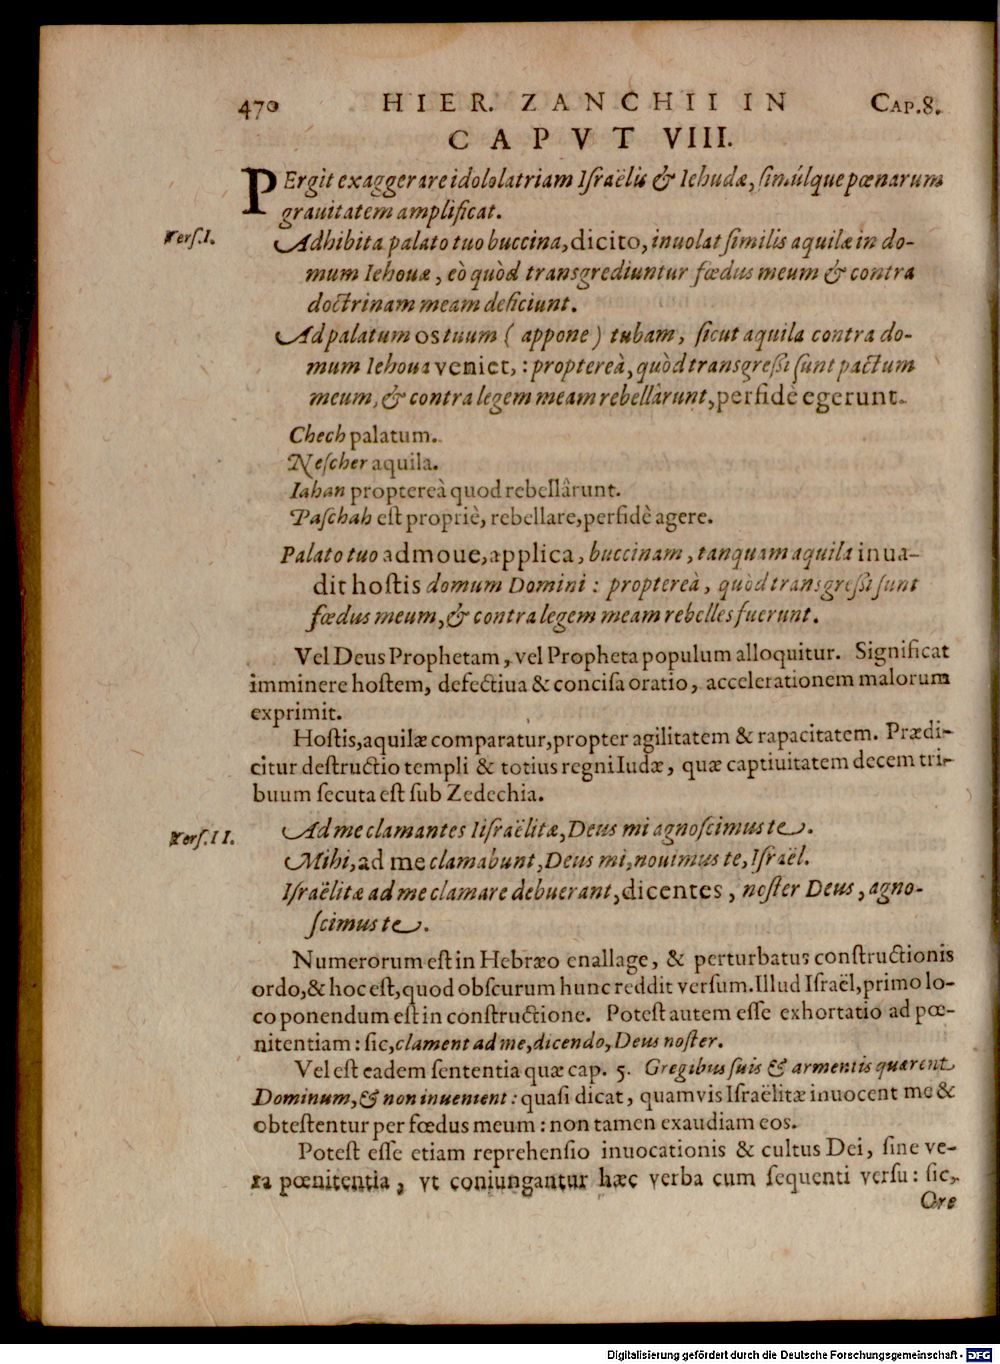 470 HIER. ZANCHII IN CAP.8.
CAPVT VIII.
PErgit exaggerare idololatriam Iſraëlis & Iehudæ, ſimúlque pœnarum
grauitatem amplificat.
Verſ.I.
Adhibita palato tuo buccina, dicito, inuolat ſimilis aquilæ in do-
mum Iehouæ, eò quòd transgrediuntur fœdus meum & contra
doctrinam meam deficiunt.
Ad palatum os tuum ( appone ) tubam, ſicut aquila contra do-
mum Iehoua veniet, : proptereà, quòd transgreßi ſunt pactum
meum, & contra legem meam rebellârunt, perfidè egerunt.
Chech palatum.
Neſcher aquila.
Iahan propterea̍ quod rebellârunt.
Paſchah eſt propriè, rebellare, perfidè agere.
Palato tuo admoue, applica, buccinam, tanquam aquila inua-
dit hoſtis domum Domini: propterea̍, quòd transgreßi ſunt
fœdus meum, & contra legem meam rebelles fuerunt.
Vel Deus Prophetam, vel Propheta populum alloquitur. Significat
imminere hoſtem, defectiua & conciſa oratio, accelerationem malorum
exprimit.
Hoſtis, aquilæ comparatur, propter agilitatem & rapacitatem. Prædi-
citur deſtructio templi & totius regni Iudæ, quæ captiuitatem decem tri-
buum ſecuta eſt ſub Zedechia.
Verſ.II.
Ad me clamantes Iiſraëlitæ, Deus mi agnoſcimus te.
Mihi, ad me clamabunt, Deus mi, nouimus te, Iſraël.
Iſraëlitæ ad me clamare debuerant, dicentes, noſter Deus, agno-
ſcimus te.
Numerorum eſt in Hebræo enallage, & perturbatus conſtructionis
ordo, & hoc eſt, quod obſcurum hunc reddit verſum. Illud Iſraël, primo lo-
co ponendum eſt in conſtructione. Poteſt autem eſſe exhortatio ad pœ-
nitentiam: ſic, clament ad me, dicendo, Deus noſter.
Vel eſt eadem ſententia quæ cap. 5. Gregibus ſuis & armentis quærent
Dominum, & non inuenient: quaſi dicat, quamvis Iſraëlitæ inuocent me &
obteſtentur per fœdus meum: non tamen exaudiam eos.
Poteſt eſſe etiam reprehenſio inuocationis & cultus Dei, ſine ve-
ra pœnitentia, vt coniungantur hæc verba cum ſequenti verſu: ſic,
Ore
Digitalisierung gefördert durch die Deutsche Forschungsgemeinschaft - DFG